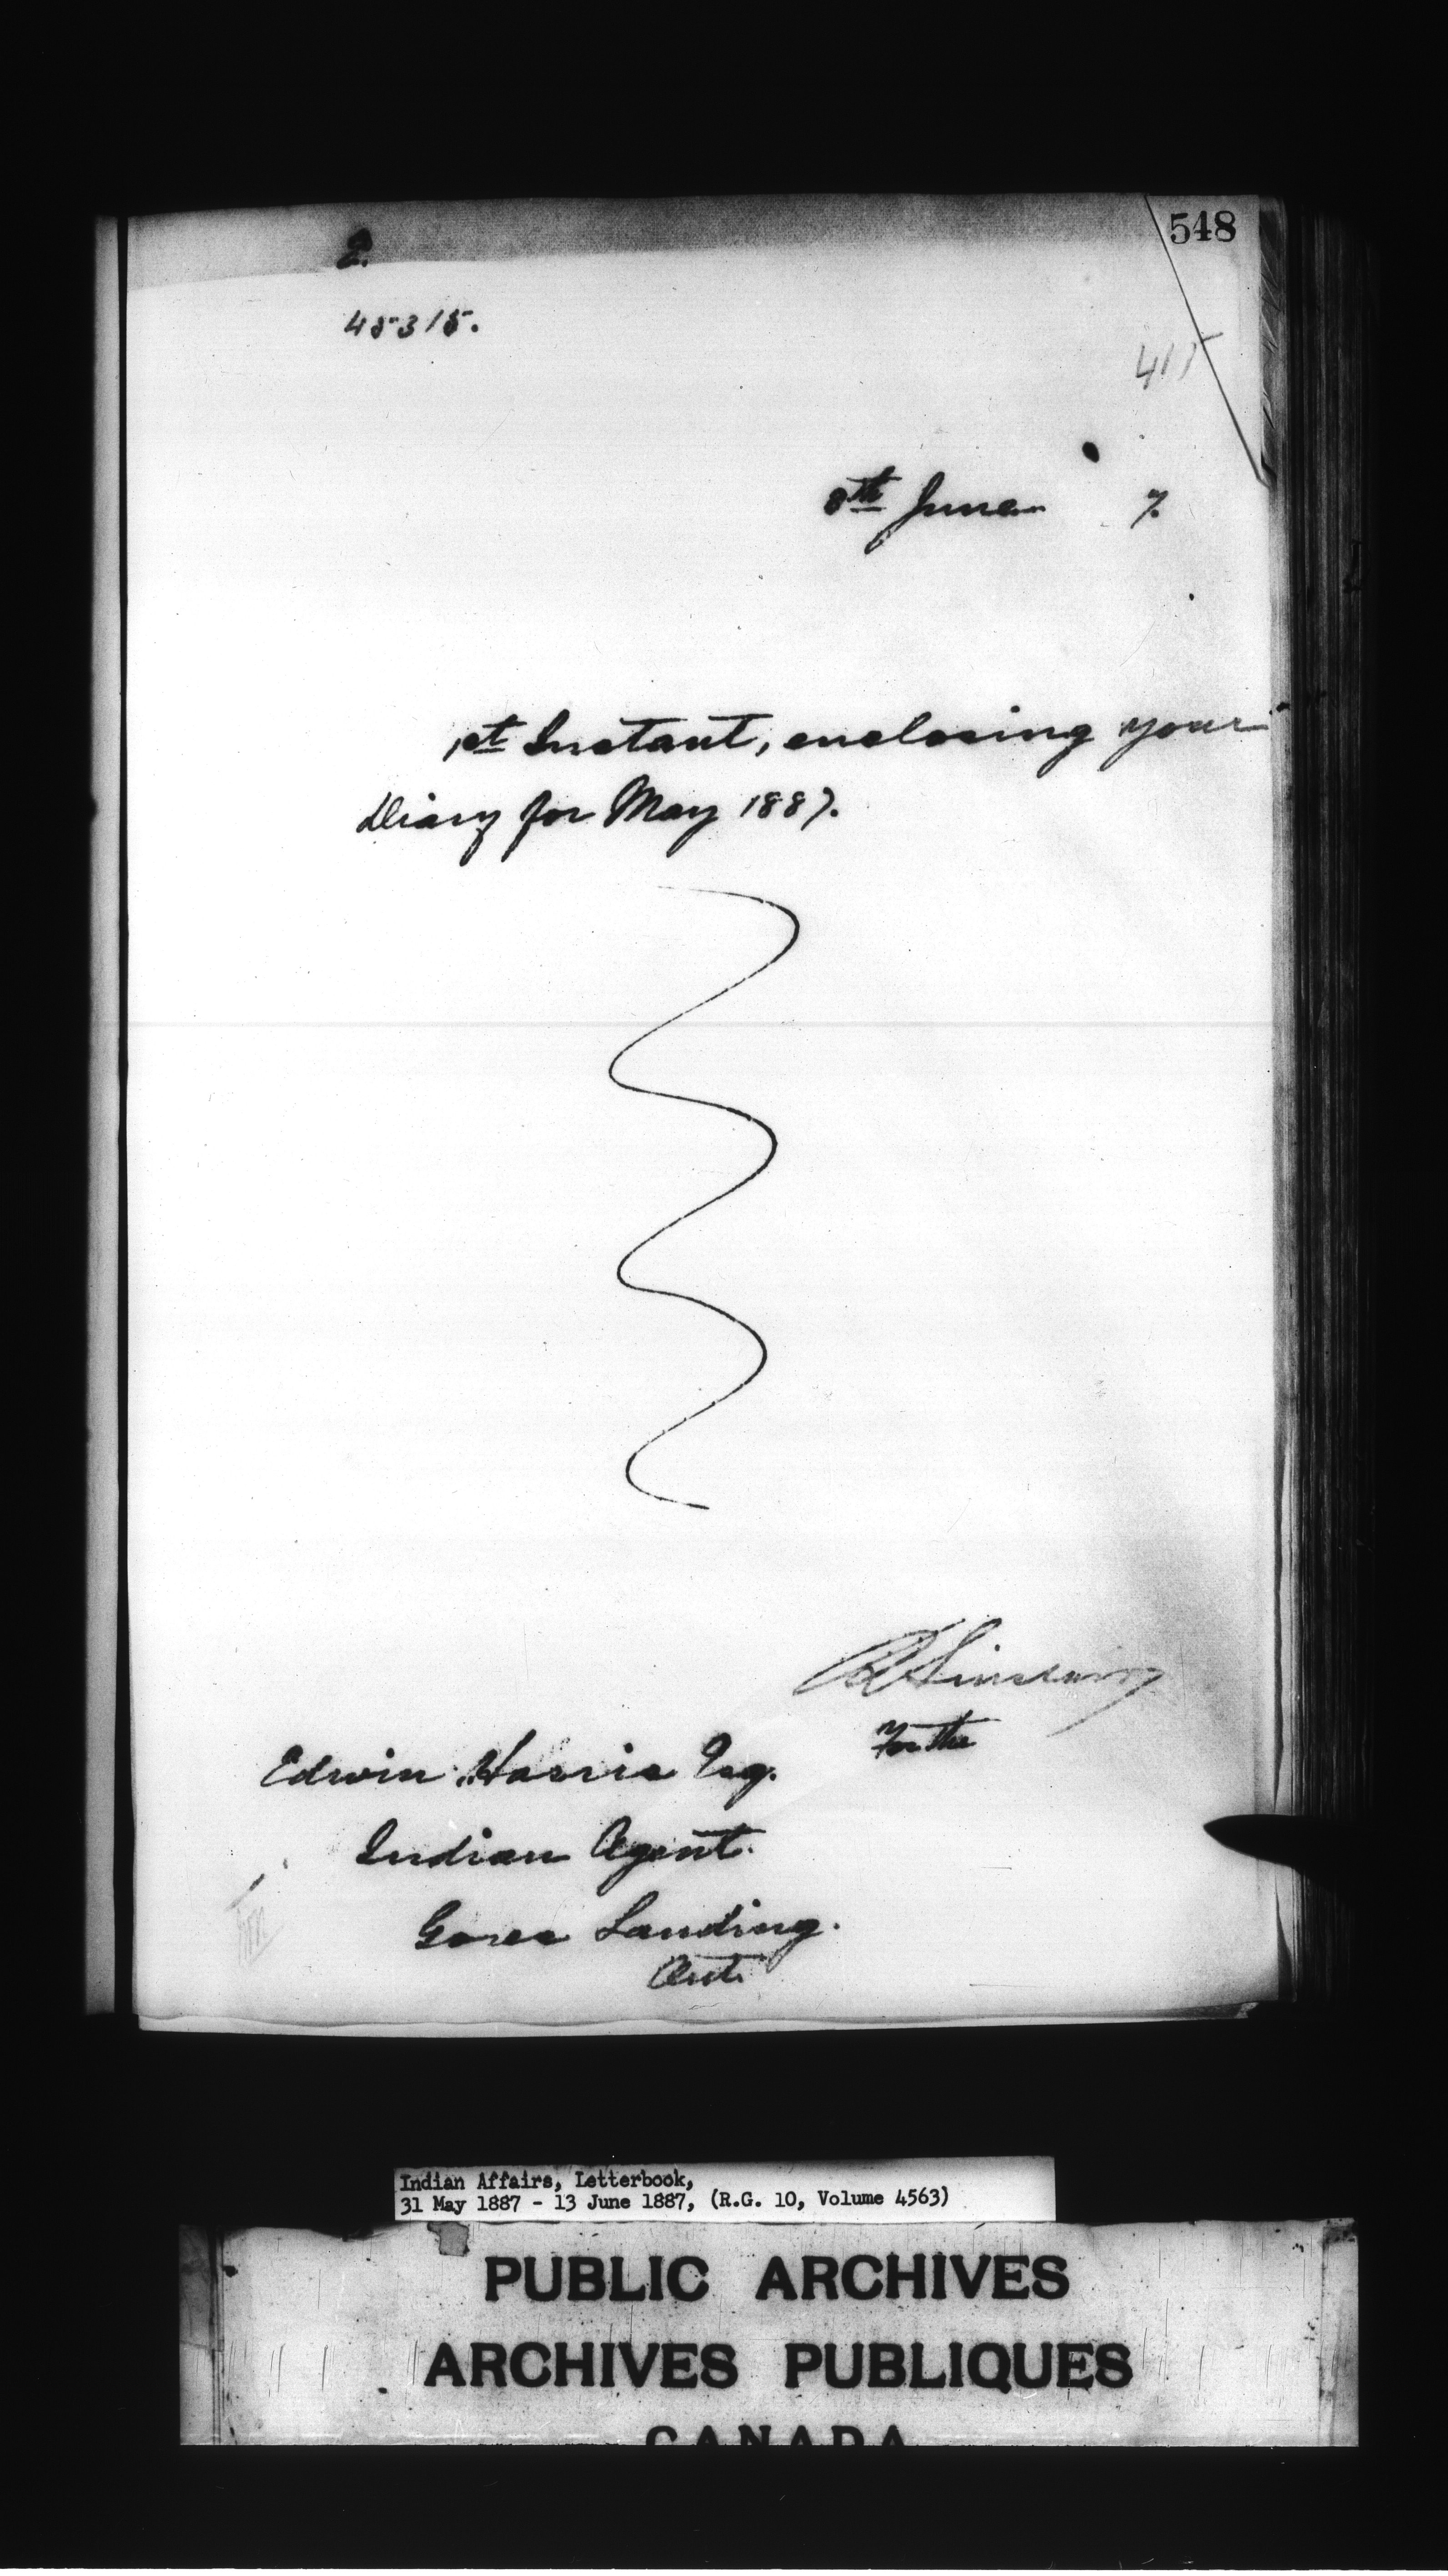 548
2.
45315.
415
8th June 7.
1st Instant, enclosing your
Diary for May 1887.
R Sinclair
For the
Edwin Harris Esq.
Indian Agent.
Gores Landing.
Ont.
Indian Affairs, Letterbook,
31 May 1887 - 13 June 1887, (R.G. 10, Volume 4563)
PUBLIC ARCHIVES
ARCHIVES PUBLIQUES
CANADA